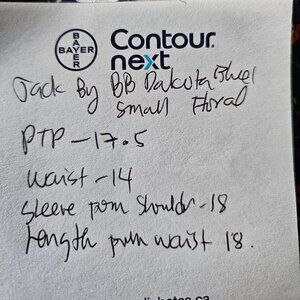 BAYER
BAYER
Contour
next
Jack By BB Dakota Blue
Small Floral
PTP - 17.5
waist - 14
sleeve from shoulder - 18
Length from waist 18.
diabetes.ca